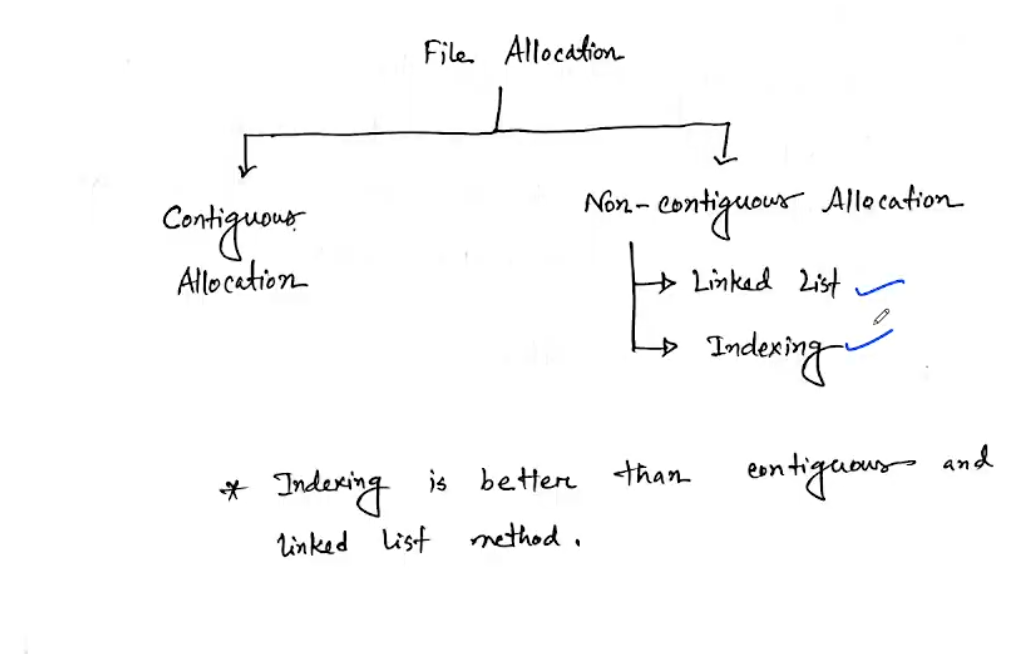 File Allocation
Contiguous
Allocation
Non-contiguous Allocation
Linked List
Indexing
* Indexing is better than contiguous and
linked list method.